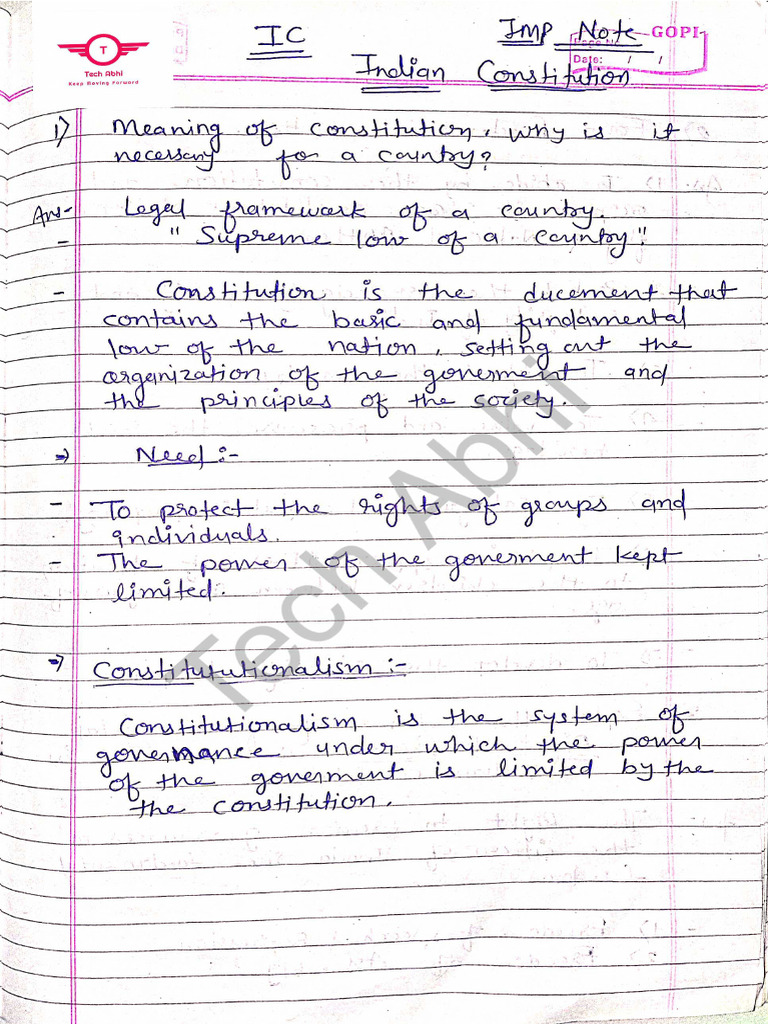 IC
IMP Note
GOPI
Page No.
Date: / /
T
Tech Abhi
Keep Moving Forward
Indian Constitution
1) Meaning of constitution, why is it
necessary for a country?
Ans- Legal framework of a country.
- "Supreme low of a country"
- Constitution is the ducement that
contains the basic and fundamental
low of the nation, setting out the
organization of the goverment and
the principles of the society.
⇒ Need :-
- To protect the rights of groups and
individuals.
- The power of the goverment kept
limited.
⇒ Constitututionalism :-
Constitutionalism is the system of
governance under which the power
of the goverment is limited by the
the constitution.
Tech Abhi